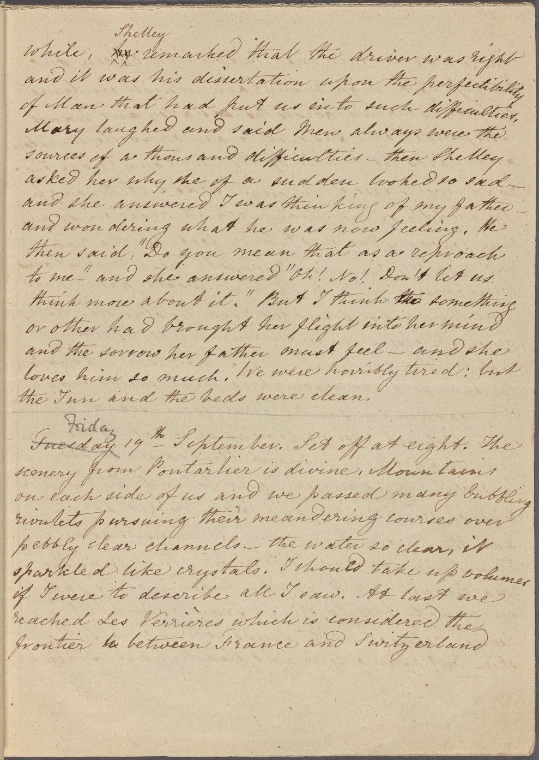 Shelley
while, remarked that the driver was right
and it was his dissertation upon the perfectibility
of Man that had put us into such difficulties.
Mary laughed and said Men always were the
sources of a thousand difficulties – then Shelley
asked her why she of a sudden looked so sad –
and she answered I was thinking of my father –
and wondering what he was now feeling. He
then said, "Do you mean that as a reproach
to me –" and she answered "Oh! No! Don't let us
think more about it." But I think the something
or other had brought her flight into her mind
and the sorrow her father must feel – and she
loves him so much. We were horribly tired: but
the Inn and the beds were clean.
Friday
Tuesday 19th September. Set off at eight. The
scenery from Pontarlier is divine. Mountains
on each side of us and we passed many bubbling
rivulets pursuing their meandering courses over
pebbly clear channels – the water so clear, it
sparkled like crystals. I should take up volumes
if I were to describe all I saw. At last we
reached Les Verrières which is considered the
frontier between France and Switzerland